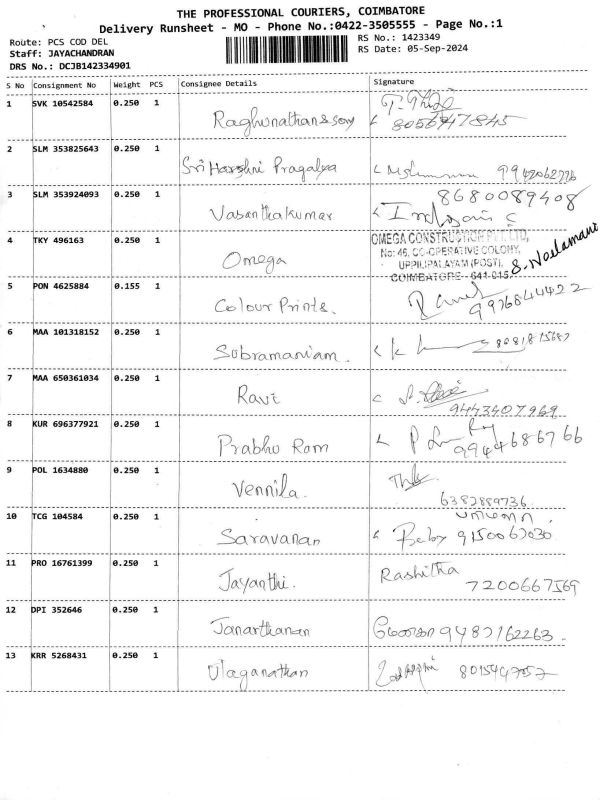 THE PROFESSIONAL COURIERS, COIMBATORE
Delivery Runsheet - MO - Phone No.:0422-3505555 - Page No.:1
Route: PCS COD DEL
RS No.: 1423349
Staff: JAYACHANDRAN
RS Date: 05-Sep-2024
DRS No.: DCJB142334901
S No Consignment No Weight PCS Consignee Details Signature
1 SVK 10542584 0.250 1
Raghunathan & sons
2 SLM 353825643 0.250 1
Sri Harshni Pragalya
3 SLM 353924093 0.250 1 8680089408
Vasanthakumar
4 TKY 496163 0.250 1 OMEGA CONSTRUCTION PVT. LTD,
No: 46, CO-OPERATIVE COLONY,
Omega UPPILIPALAYAM (POST), S. Neelamani
COIMBATORE - 641 015.
5 PON 4625884 0.155 1
Colour Prints. 9976844422
6 MAA 101318152 0.250 1
Subramaniam.
7 MAA 650361034 0.250 1
Ravi
9443407969
8 KUR 696377921 0.250 1
Prabhu Ram 9944686766
9 POL 1634880 0.250 1
Vennila.
6382889736
10 TCG 104584 0.250 1
Saravanan Baby 9150067030
11 PRO 16761399 0.250 1 Rashitha
Jayanthi. 7200667569
12 DPI 352646 0.250 1
Janarthanan மேனகா 9487162263.
13 KRR 5268431 0.250 1
Ulaganathan